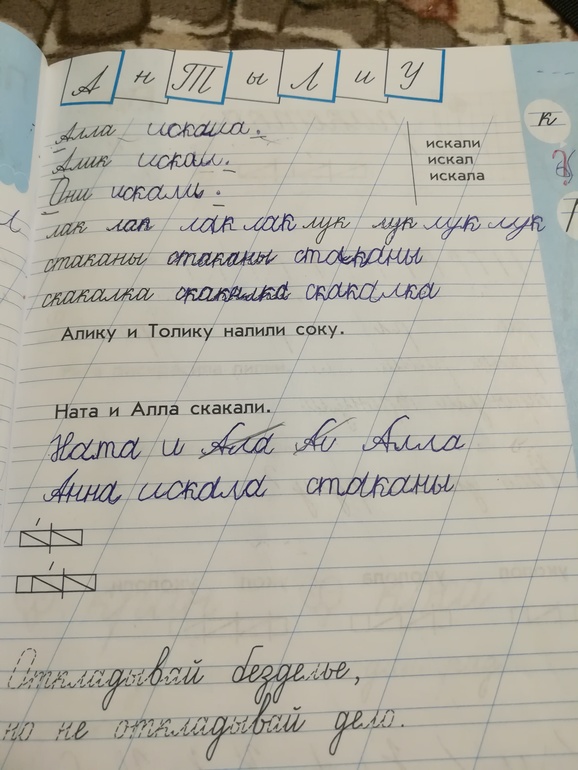 А н Т ы Л и У
Алла искала.
Алик искал.
Они искали.
искали
искал
искала
к
лак лак лак лак лук лук лук лук
стаканы стаканы стаканы
скакалка скакалка скакалка
Алику и Толику налили соку.
Ната и Алла скакали.
Ната и Ала Ал Алла
Анна искала стаканы
Откладывай безделье,
но не откладывай дело.